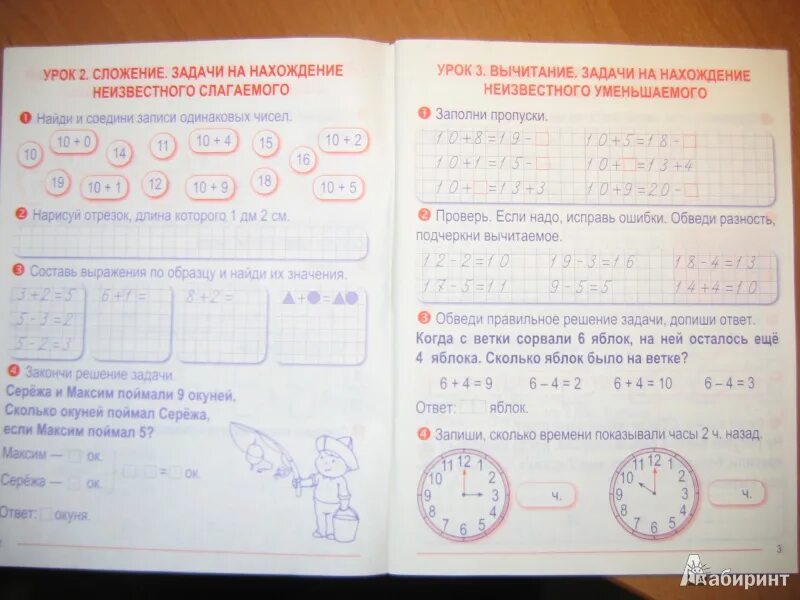 УРОК 2. СЛОЖЕНИЕ. ЗАДАЧИ НА НАХОЖДЕНИЕ
НЕИЗВЕСТНОГО СЛАГАЕМОГО
1 Найди и соедини записи одинаковых чисел.
10 10 + 0 14 11 10 + 4 15 16 10 + 2
19 10 + 1 12 10 + 9 18 10 + 5
2 Нарисуй отрезок, длина которого 1 дм 2 см.
3 Составь выражения по образцу и найди их значения.
3+2=5 6+1= 8+2= ▲+●=▲●
5-3=2
5-2=3
4 Закончи решение задачи.
Серёжа и Максим поймали 9 окуней.
Сколько окуней поймал Серёжа,
если Максим поймал 5?
Максим – □ ок.
Серёжа – □ ок.
□ □ = □ ок.
Ответ: □ окуня.
УРОК 3. ВЫЧИТАНИЕ. ЗАДАЧИ НА НАХОЖДЕНИЕ
НЕИЗВЕСТНОГО УМЕНЬШАЕМОГО
1 Заполни пропуски.
10+8=19-□ 10+5=18-□
10+1=15-□ 10+□=13+4
10+□=13+3 10+9=20-□
2 Проверь. Если надо, исправь ошибки. Обведи разность,
подчеркни вычитаемое.
12-2=10 19-3=16 18-4=13
17-5=11 9-5=5 14+4=10
3 Обведи правильное решение задачи, допиши ответ.
Когда с ветки сорвали 6 яблок, на ней осталось ещё
4 яблока. Сколько яблок было на ветке?
6 + 4 = 9 6 – 4 = 2 6 + 4 = 10 6 – 4 = 3
Ответ: □□ яблок.
4 Запиши, сколько времени показывали часы 2 ч. назад.
12 1 2 3 4 5 6 7 8 9 10 11
ч.
12 1 2 3 4 5 6 7 8 9 10 11
ч.
3
Лабиринт